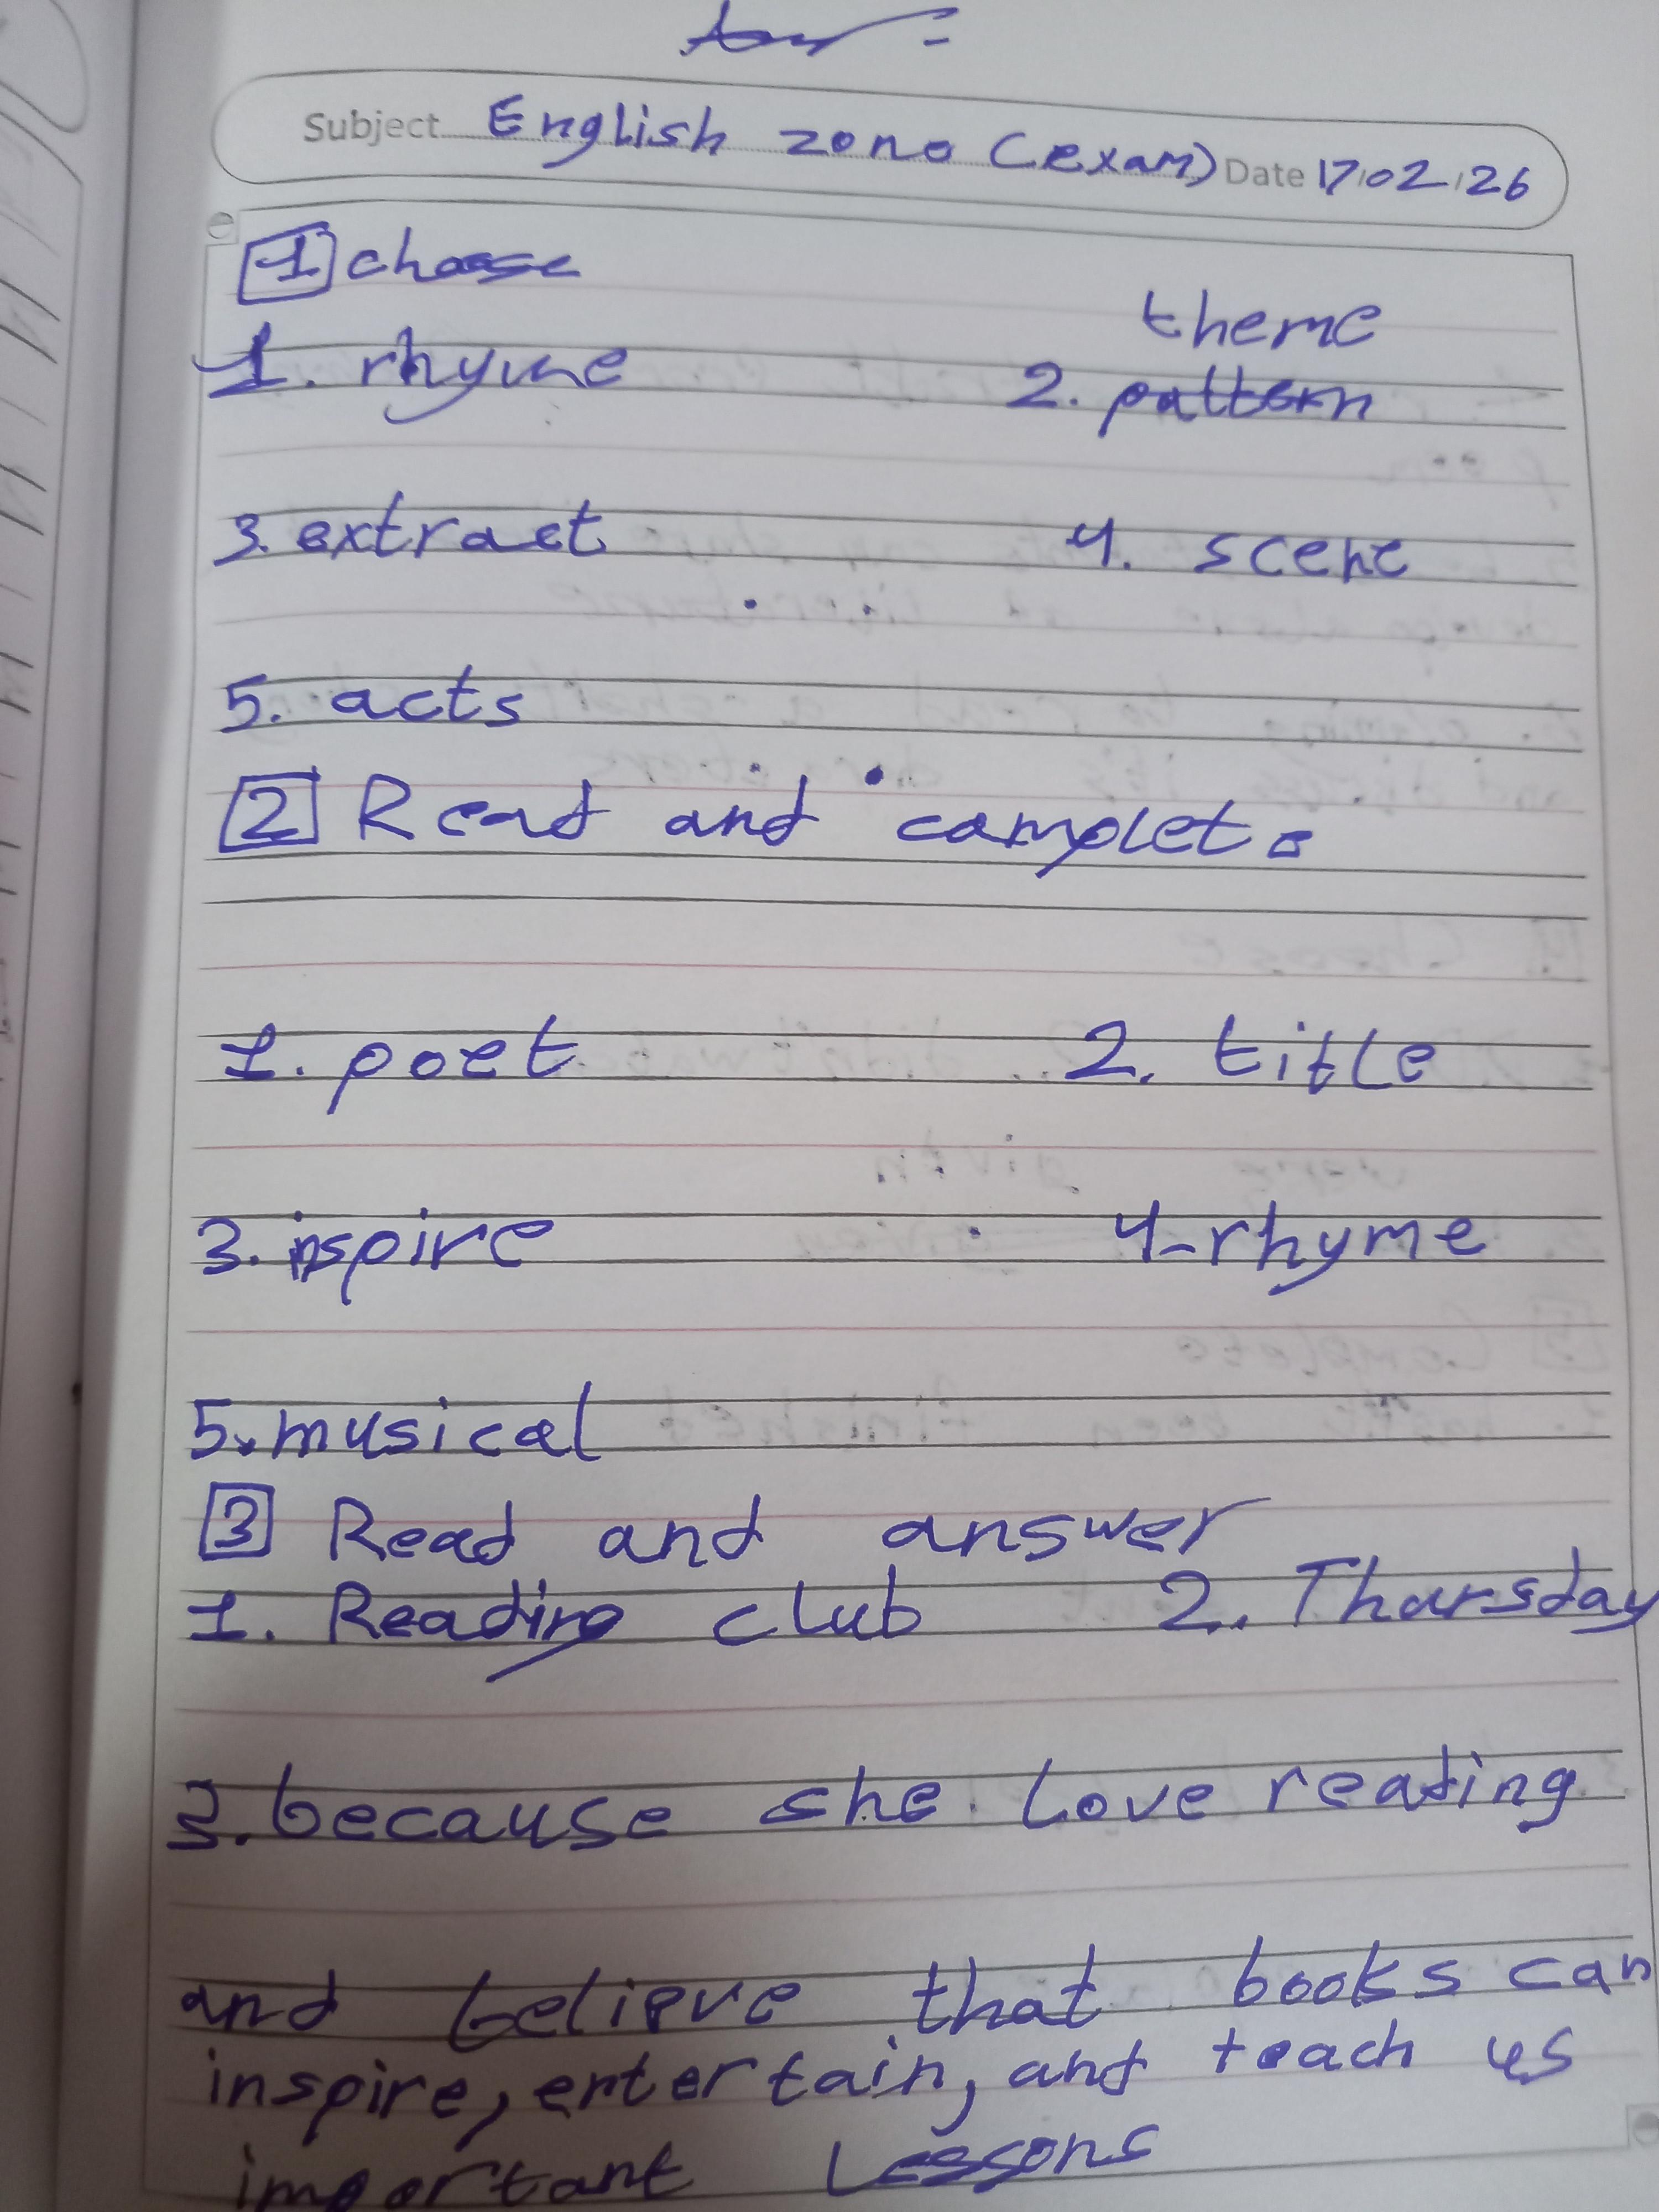 Ans :
Subject English zone (exam) Date 17/02/26
1 choose
theme
1. rhyme 2. pattern
3. extract 4. scene
5. acts
2 Read and complete
1. poet 2. title
3. inspire 4-rhyme
5. musical
3 Read and answer
1. Reading club 2. Thursday
3. because she love reading
and believe that books can
inspire, entertain, and teach us
important Lessons